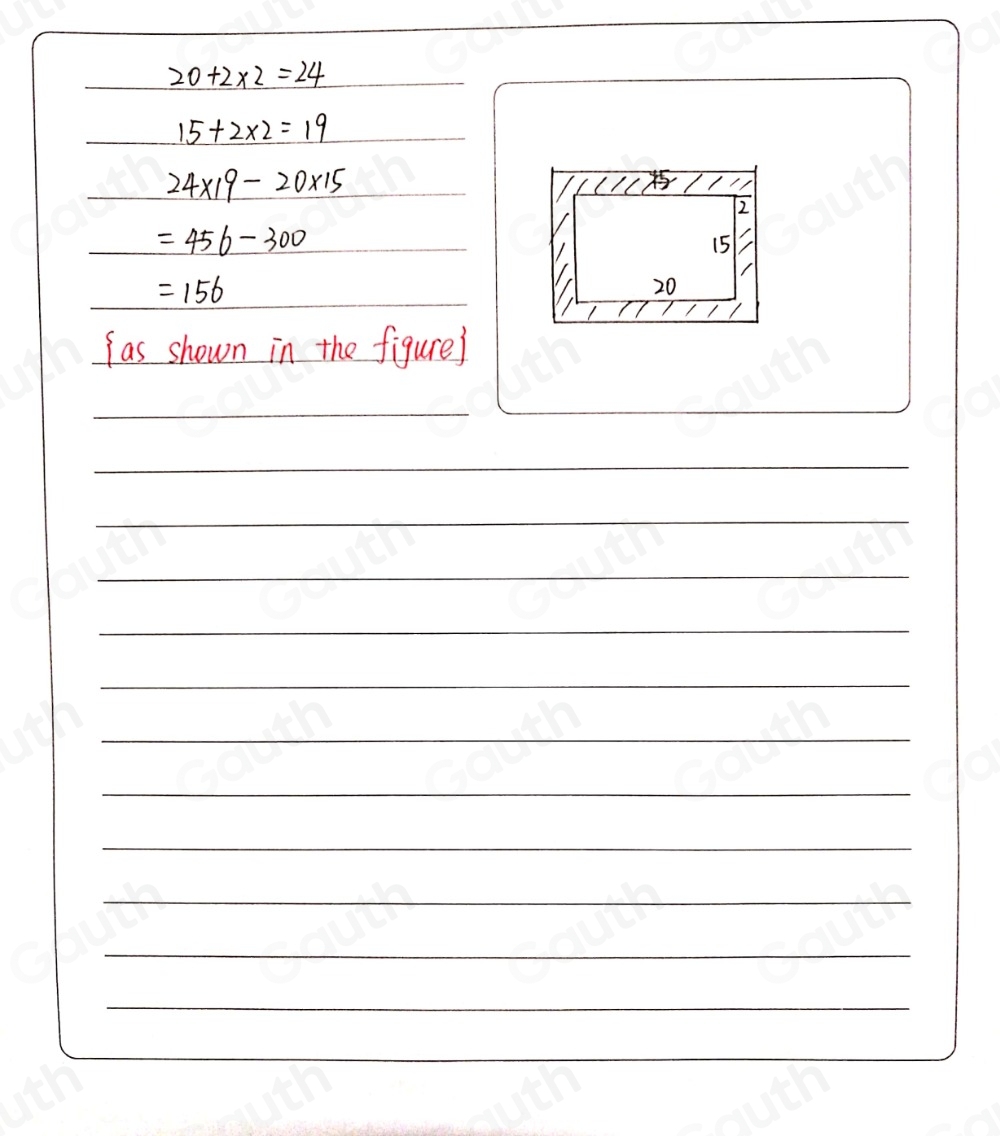 20+2×2=24
15+2×2=19
24×19-20×15
=456-300
=156
{as shown in the figure}
2
15
20